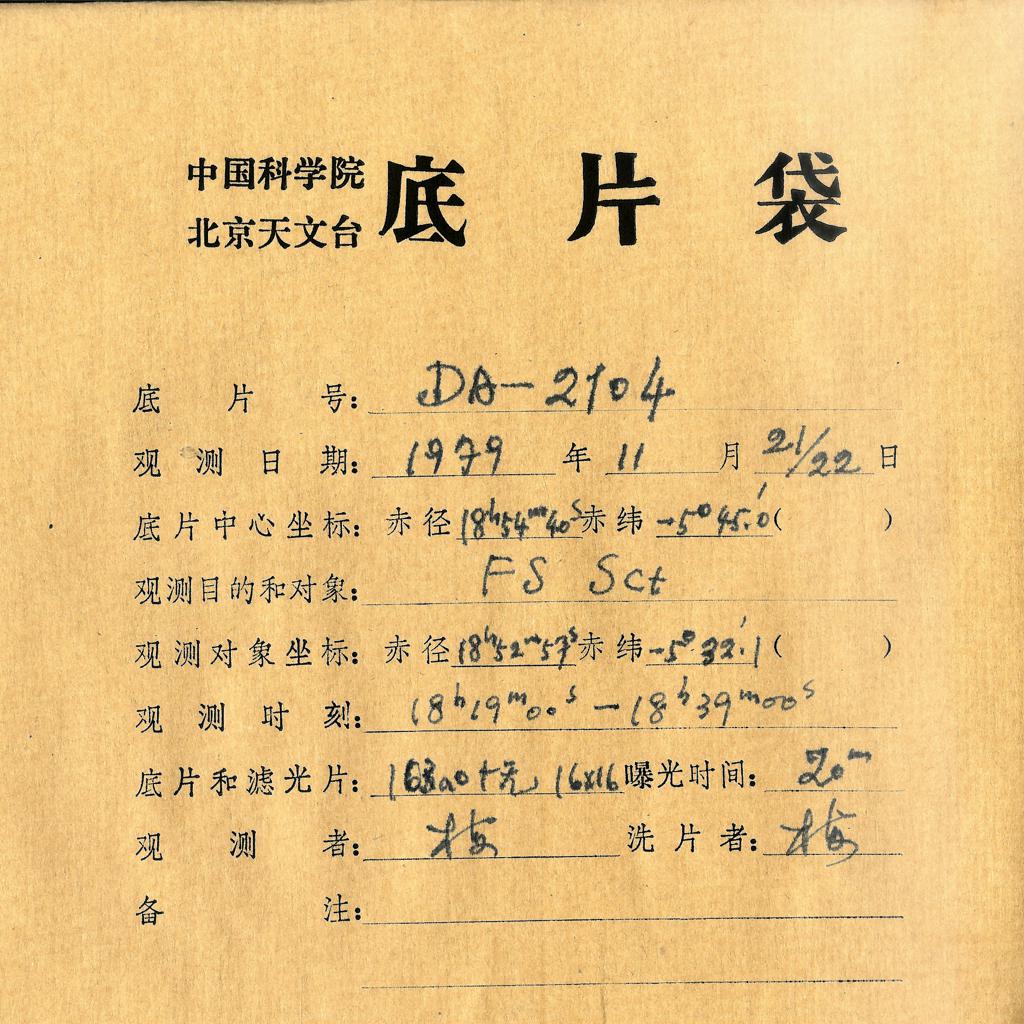 中国科学院
北京天文台
底片袋
底片号: DA-2104
观测日期: 1979 年 11 月 21/22 日
底片中心坐标: 赤径 18h54m40s 赤纬 -5°45.'0 ( )
观测目的和对象: FS Sct
观测对象坐标: 赤径 18h52m57s 赤纬 -5° 32.'1 ( )
观测时刻: 18h19m00s - 18h39m00s
底片和滤光片: 103aO+无, 16x16 曝光时间: 20m
观测者: 梅 洗片者: 梅
备注: